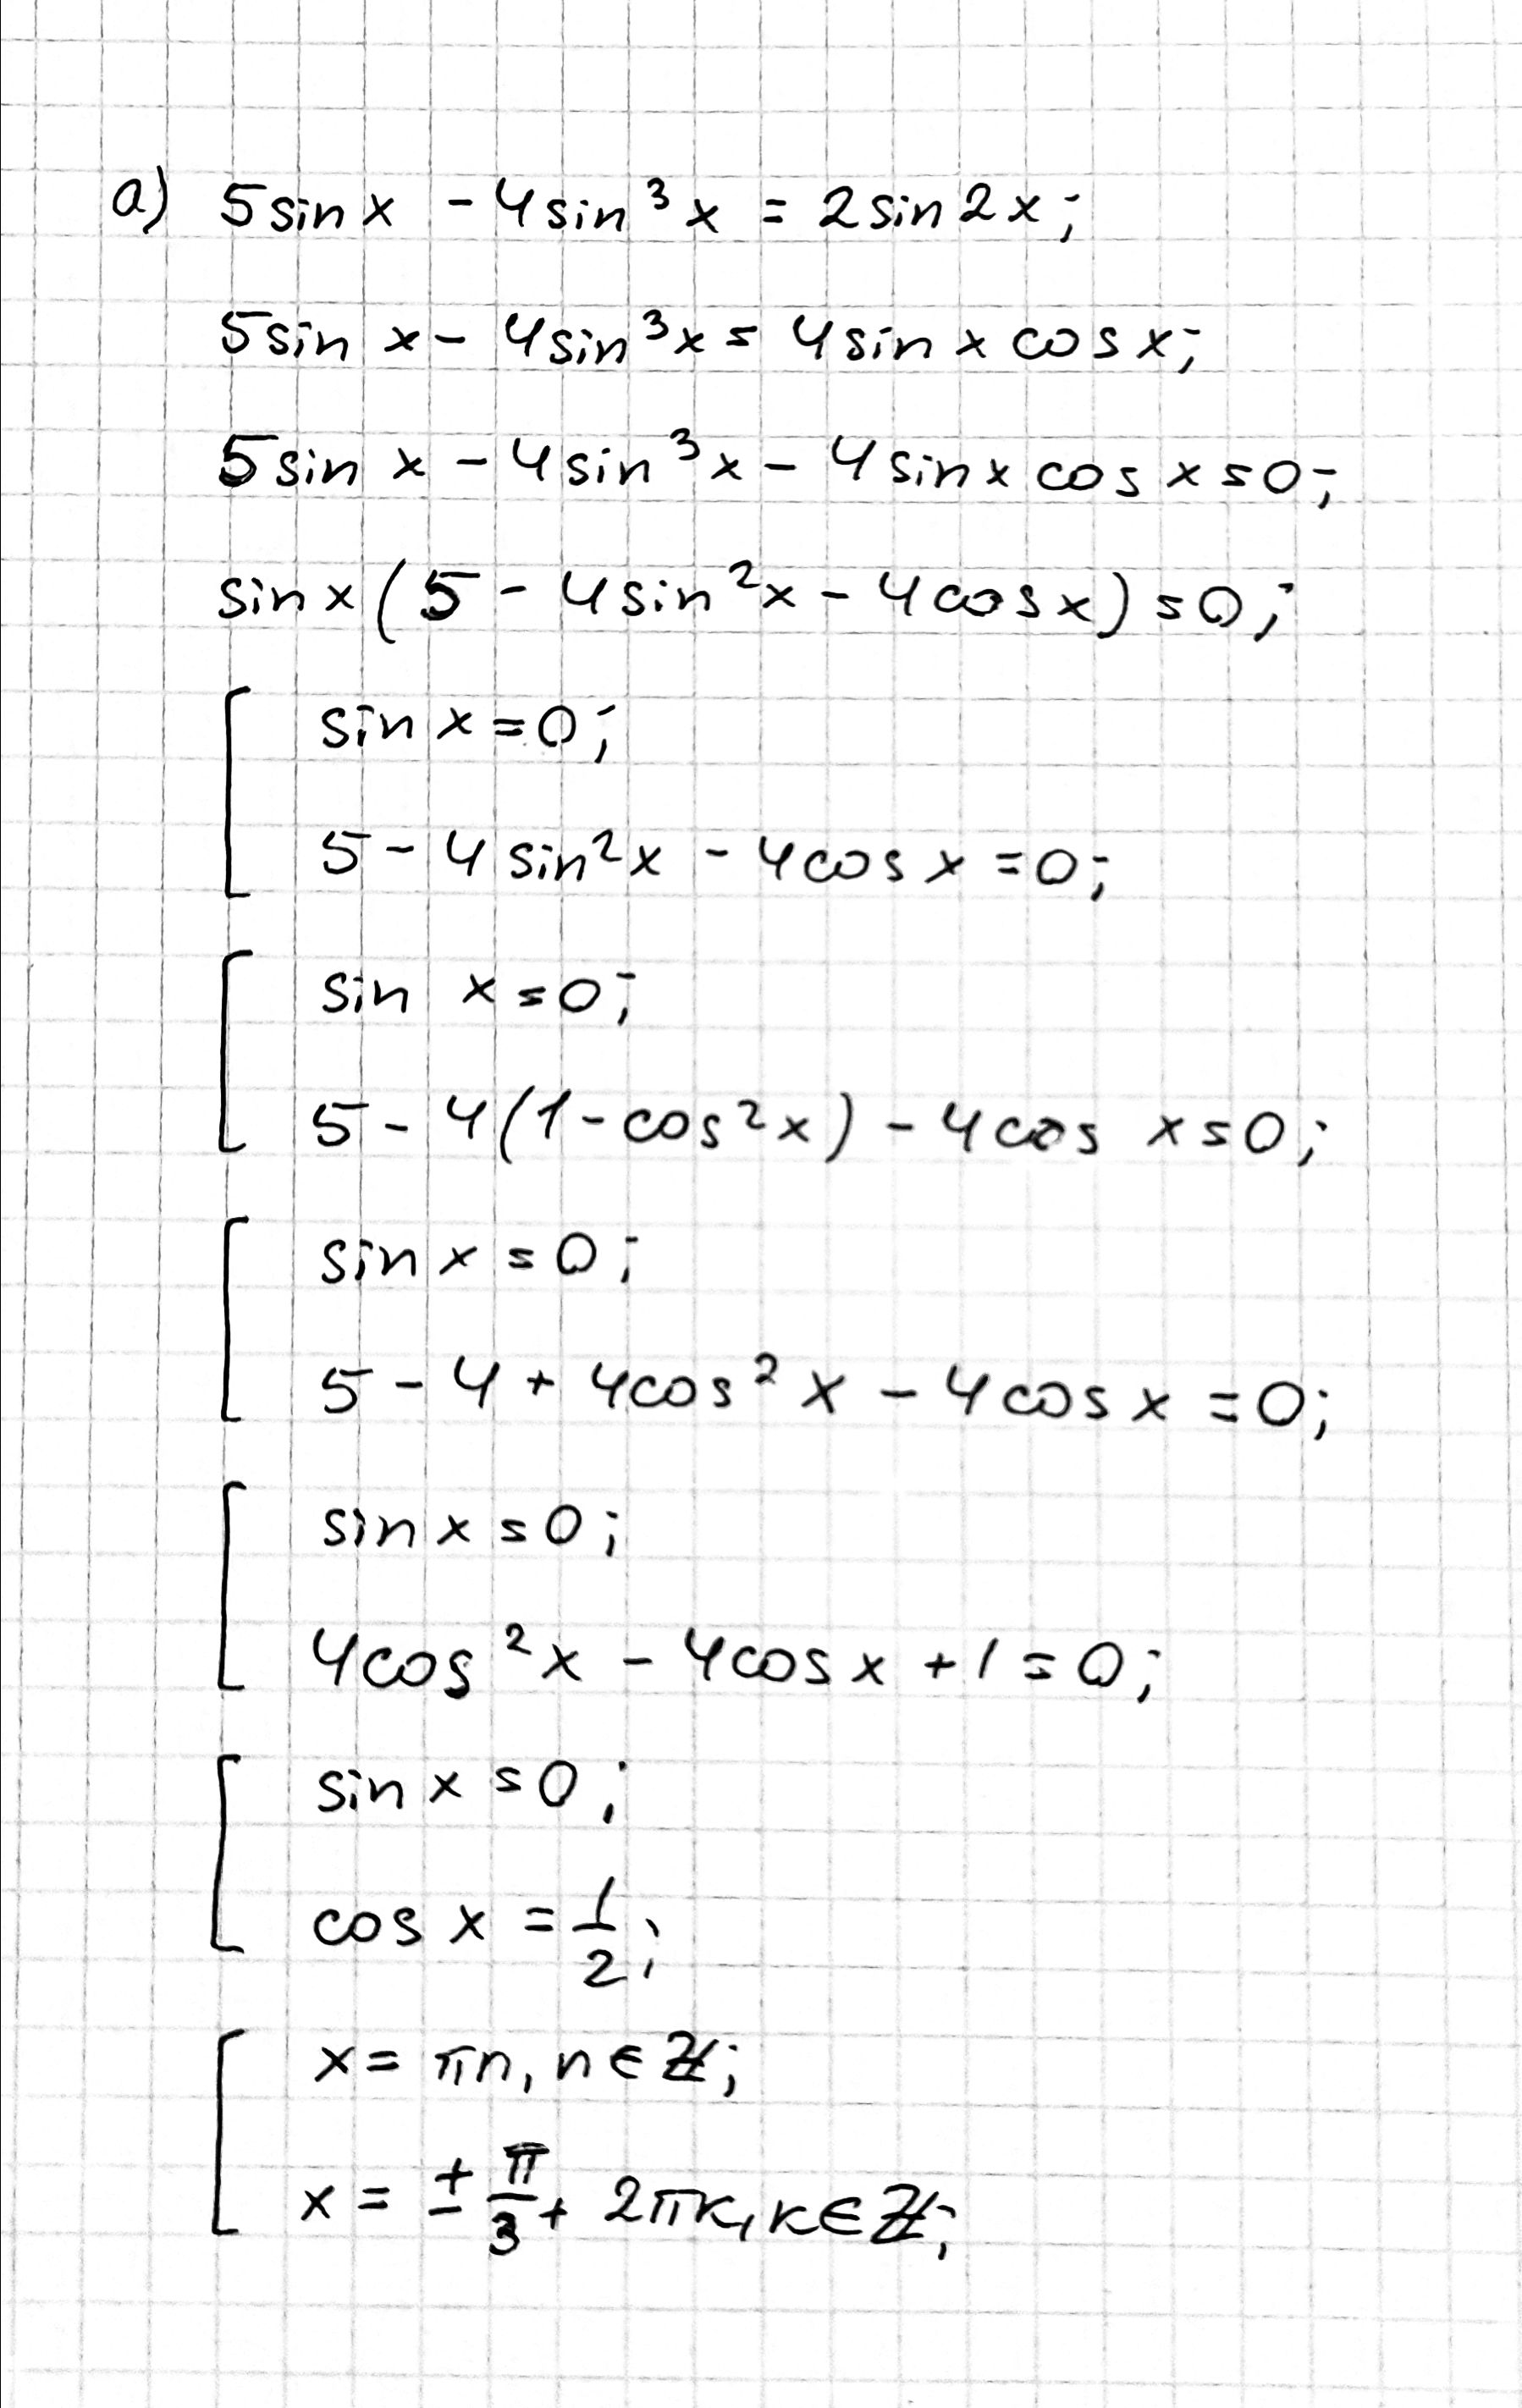 а) 5sin x - 4sin³x = 2sin2x;
5sin x - 4sin³x = 4sin x cos x;
5sin x - 4sin³x - 4sin x cos x = 0;
sin x (5 - 4sin²x - 4cos x) = 0;
sin x = 0;
5 - 4sin²x - 4cos x = 0;
sin x = 0;
5 - 4(1 - cos²x) - 4cos x = 0;
sin x = 0;
5 - 4 + 4cos²x - 4cos x = 0;
sin x = 0;
4cos²x - 4cos x + 1 = 0;
sin x = 0;
cos x = 1/2;
x = πn, n ∈ ℤ;
x = ± π/3 + 2πк, к ∈ ℤ;